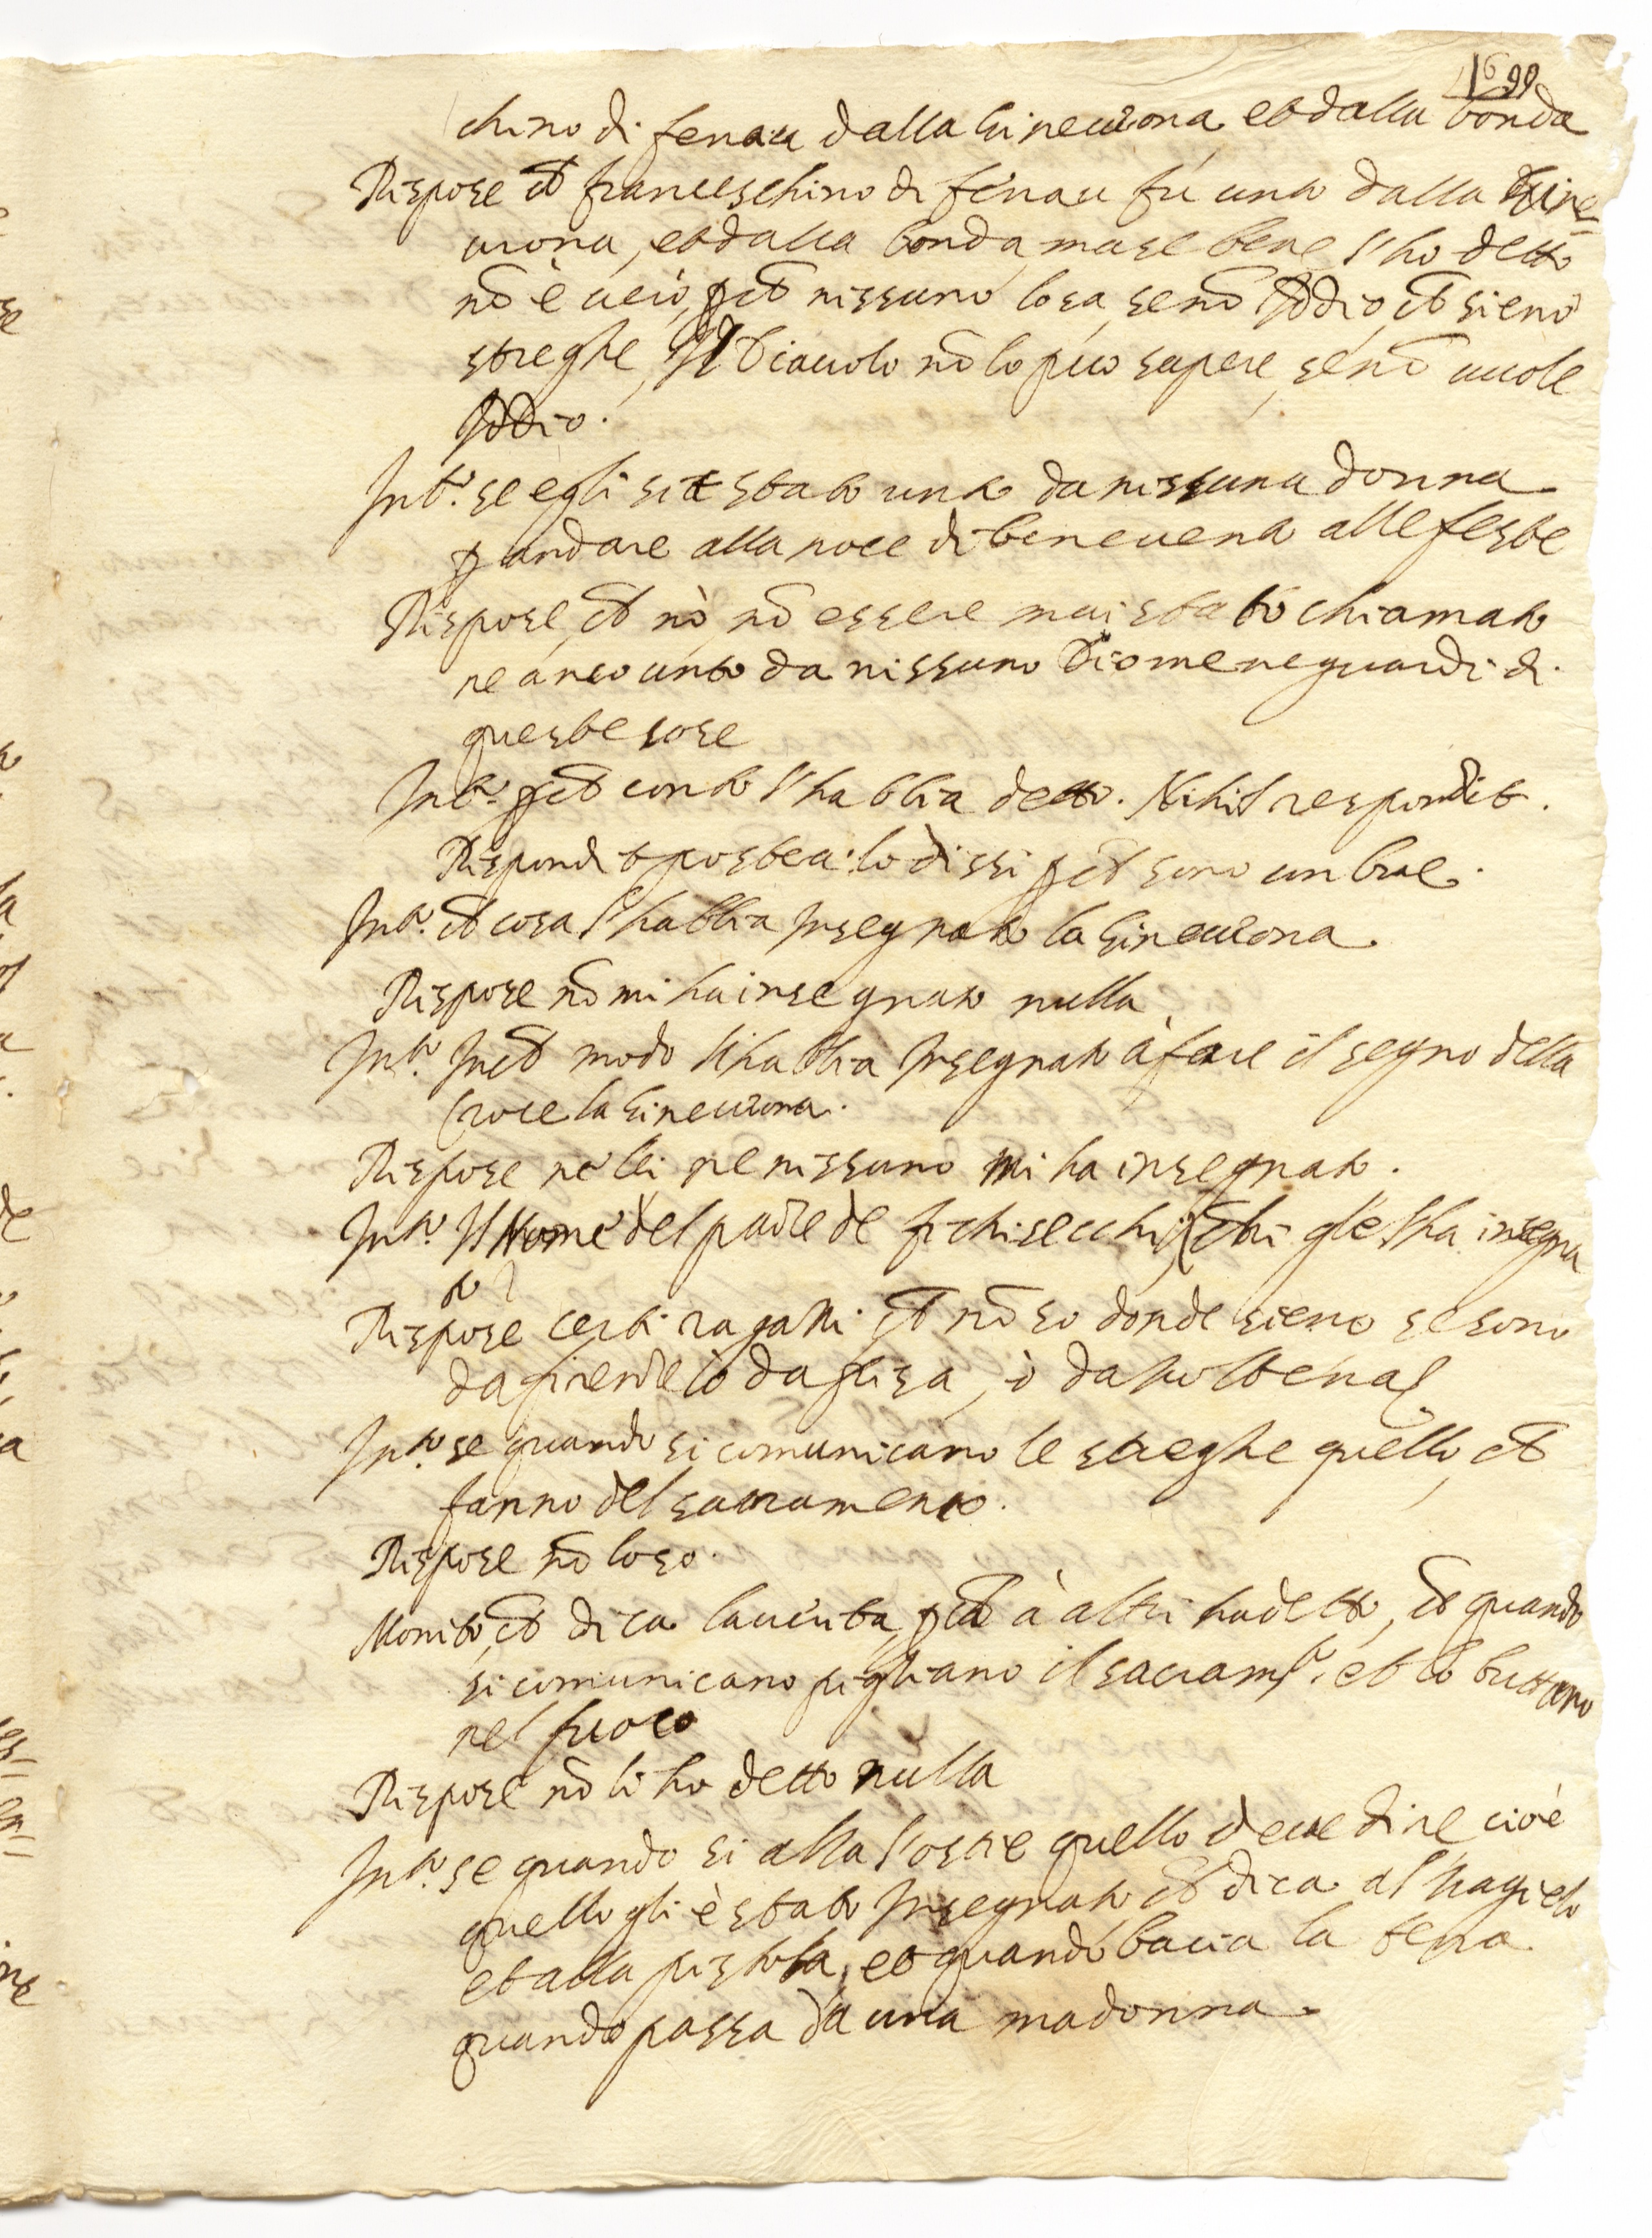 chino di fenau dalla Ginevrona, et dalla bonda
Rispose ch franceschino di fenau fu unto dalla Gine=
vrona, et dalla bonda, ma se bene l'ho detto
nō è vero, pch nissuno lo sa, se nō Iddio, ch sieno
streghe, Il Diavolo nō lo puo sapere, se nō vuole
Iddio.
Int.º se egli sia stato unto da nissuna donna
p andare alla noce di benevento alle feste
Rispose, ch nò, nō essere mai stato chiamato
ne anco unto da nissuno Dio me ne guardi di
queste cose
Int.º pch conto l'habbia detto. Nihil respondit.
Respondit postea: lo dissi pch sono un bue.
Int.º ch cosa l'habbia Insegnato la Ginevrona.
Rispose nō mi ha insegnato nulla.
Int.º In ch modo l'habbia Insegnato à fare il segno della
Croce la Ginevrona.
Rispose nè lei ne nissuno mi ha insegnato.
Int.º Il Nome del padre de fichi secchi, chi gle l'ha insegna
to?
Rispose certi ragazzi ch nō so donde sieno se sono
da firenze ò da pisa, ò da
Int.º se quando si comunicano le streghe quello, ch
fanno del sacramento.
Rispose nō lo so.
Monito, ch dica la verita, pch à altri ha detto, ch quando
si comunicano pigliano il sacram.º et lo buttono
nel fuoco
Rispose nō li ho detto nulla
Int.º se quando si alza l'ostie quello deve dire cioè
quello gli è stato Insegnato ch dica al
et alla pistola, et quando bacia la terra
quando passa da una madonna.